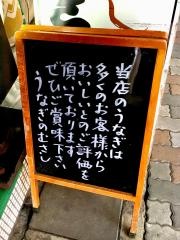 当店のうなぎは
多くのお客様から
おいしいとのご評価を
頂いております
ぜひご賞味下さい、
うなぎのむさし